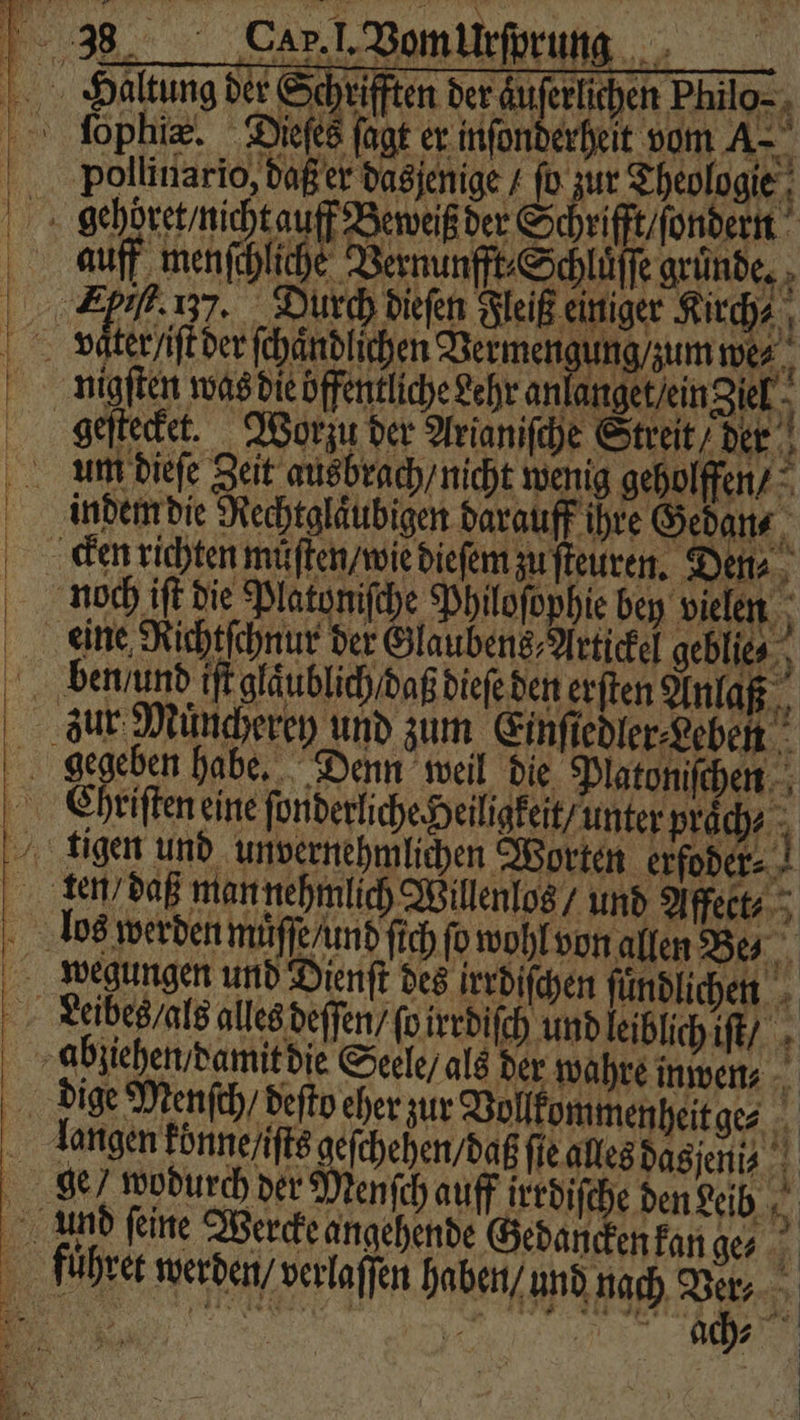 38 Cap. I. Vom Urſprung
Haltung der Schrifften der aͤuſerlichen Philo-
ſophiæ. Dieſes ſagt er inſonderheit vom A-
pollinario, daß er dasjenige / ſo zur Theologie
gehoͤret/nicht auff Beweiß der Schrifft/ſondern
auff menſchliche Vernunfft⸗Schluͤſſe gruͤnde.
Epiſt. 137. Durch dieſen Fleiß einiger Kirch⸗
vaͤter/iſt der ſchaͤndlichen Vermengung/zum we⸗
nigſten was die oͤffentliche Lehr anlanget/ein Ziel
geſtecket. Worzu der Arianiſche Streit / der
um dieſe Zeit ausbrach/nicht wenig geholffen/
indem die Rechtglaͤubigen darauff ihre Gedan⸗
cken richten muͤſten/wie dieſem zu ſteuren. Den⸗
noch iſt die Platoniſche Philoſophie bey vielen
eine Richtſchnur der Glaubens⸗Artickel geblie⸗
ben/und iſt glaͤublich/daß dieſe den erſten Anlaß
zur Muͤncherey und zum Einſiedler⸗Leben
gegeben habe. Denn weil die Platoniſchen
Chriſten eine ſonderliche Heiligkeit/ unter praͤch⸗
tigen und unvernehmlichen Worten erfoder⸗
ten/ daß man nehmlich Willenlos / und Affect⸗
los werden muͤſſe/und ſich ſo wohl von allen Be⸗
wegungen und Dienſt des irrdiſchen ſuͤndlichen
Leibes/als alles deſſen/ ſo irrdiſch und leiblich iſt/
abziehen/damit die Seele/ als der wahre inwen⸗
dige Menſch/ deſto eher zur Vollkommenheit ge⸗
langen koͤnne/iſts geſchehen/daß ſie alles dasjeni⸗
ge / wodurch der Menſch auff irrdiſche den Leib
und ſeine Wercke angehende Gedancken kan ge⸗
fuͤhret werden/ verlaſſen haben/ und nach Ver⸗
ach⸗